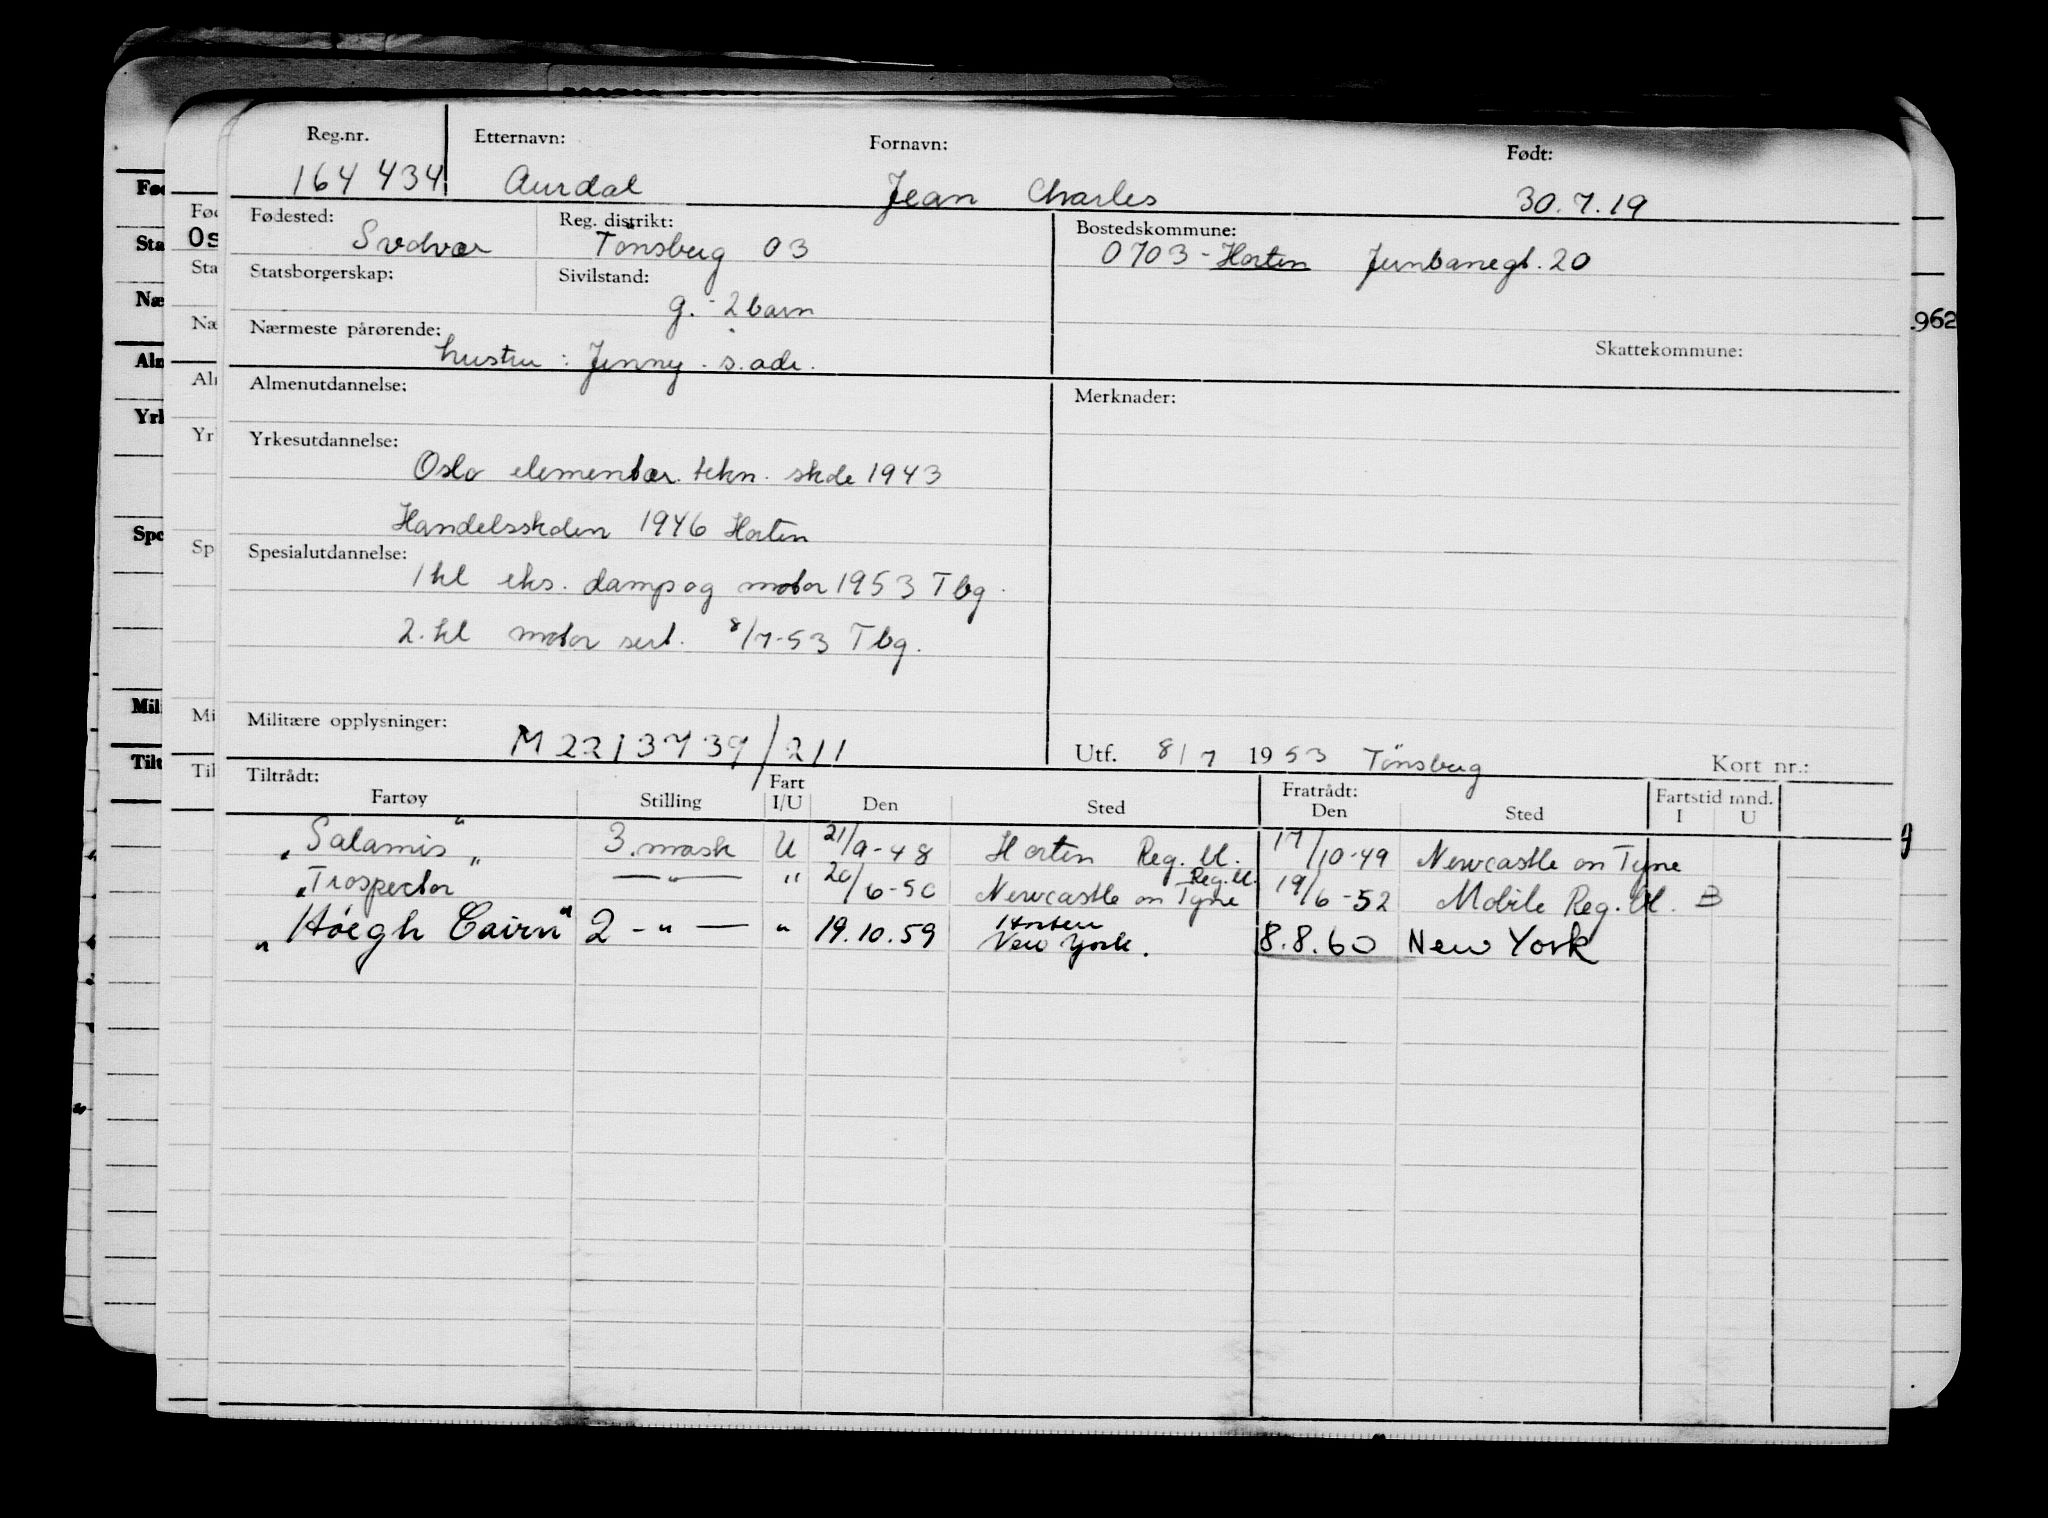 Reg.nr. Etternavn: Fornavn: Født:
164 434 Aurdal Jean Charles 30.7.19
Fødested: Reg. distrikt: Bostedskommune:
Svolvær Tönsberg 03 0703 - Horten Jernbanegt. 20
Statsborgerskap: Sivilstand:
g. - 2 barn
Nærmeste pårørende: Skattekommune:
hustru : Jenny . s. adr.
Almenutdannelse: Merknader:
Yrkesutdannelse:
Oslo elementær. tekn. skole 1943
Handelsskolen 1946 Horten
Spesialutdannelse:
1 kl eks. damp og motor 1953 Tbg.
2. kl motor sert. 8/7-53 Tbg.
Militære opplysninger:
M 2213739/211
Utf. 8/7 1953 Tönsberg Kort nr.:
Tiltrådt: Fart Fratrådt: Fartstid mnd.
Fartøy Stilling I/U Den Sted Den Sted I U
"Salamis" 3. mask U 21/9-48 Horten Reg. bl. 17/10-49 Newcastle on Tyne
"Trospector —"— " 20/6-50 Newcastle on Tyne Reg. bl. 19/6-52 Mobile Reg. bl. B
"Höegh Cairn" 2 -"— " 19.10.59 Horten New York. 8.8.60 New York
Fød
Os
Sta
Næ
Alm
Yrk
Spe
Mil
Tilt
962